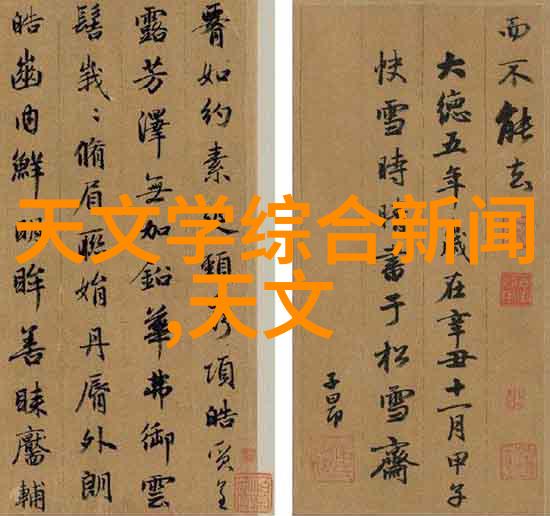 天文学综合新闻
,天文
而不能去
大德五年歲在辛丑十一月甲子
快雪時晴書于松雪齋
子昂
腰如約素延頸秀項皓質呈
露芳澤無加鉛華弗御雲
髻峩〻脩眉聯娟丹脣外朗
皓齒内鮮明眸善睞靨輔